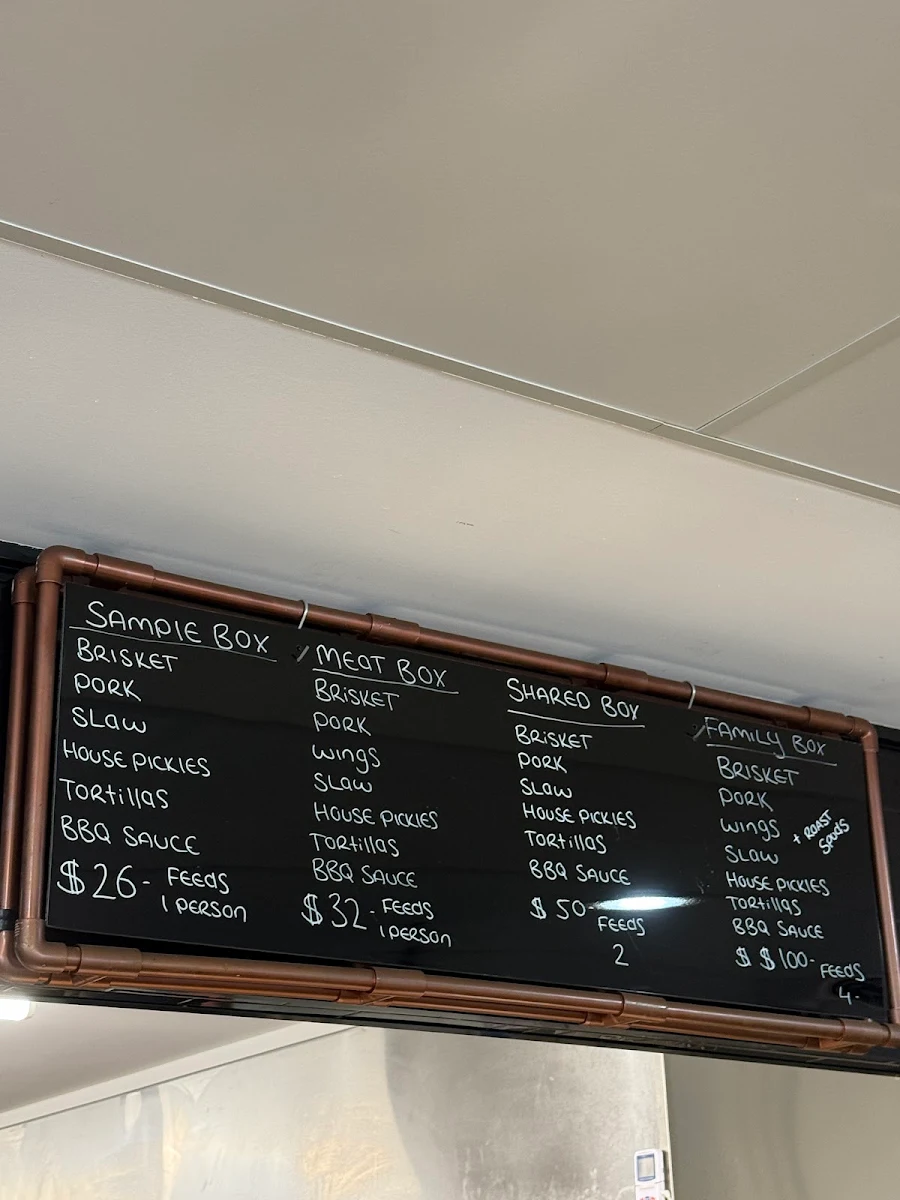 SAMPLE BOX
BRISKET
PORK
SLAW
HOUSE PICKLES
TORTILLAS
BBQ SAUCE
$26- FEEDS
1 PERSON
MEAT BOX
BRISKET
PORK
WINGS
SLAW
HOUSE PICKLES
TORTILLAS
BBQ SAUCE
$32- FEEDS
1 PERSON
SHARED BOX
BRISKET
PORK
SLAW
HOUSE PICKLES
TORTILLAS
BBQ SAUCE
$50-
FEEDS
2
FAMILY BOX
BRISKET
PORK
WINGS
+ ROAST
SPUDS
SLAW
HOUSE PICKLES
TORTILLAS
BBQ SAUCE
$ $100- FEEDS
4-